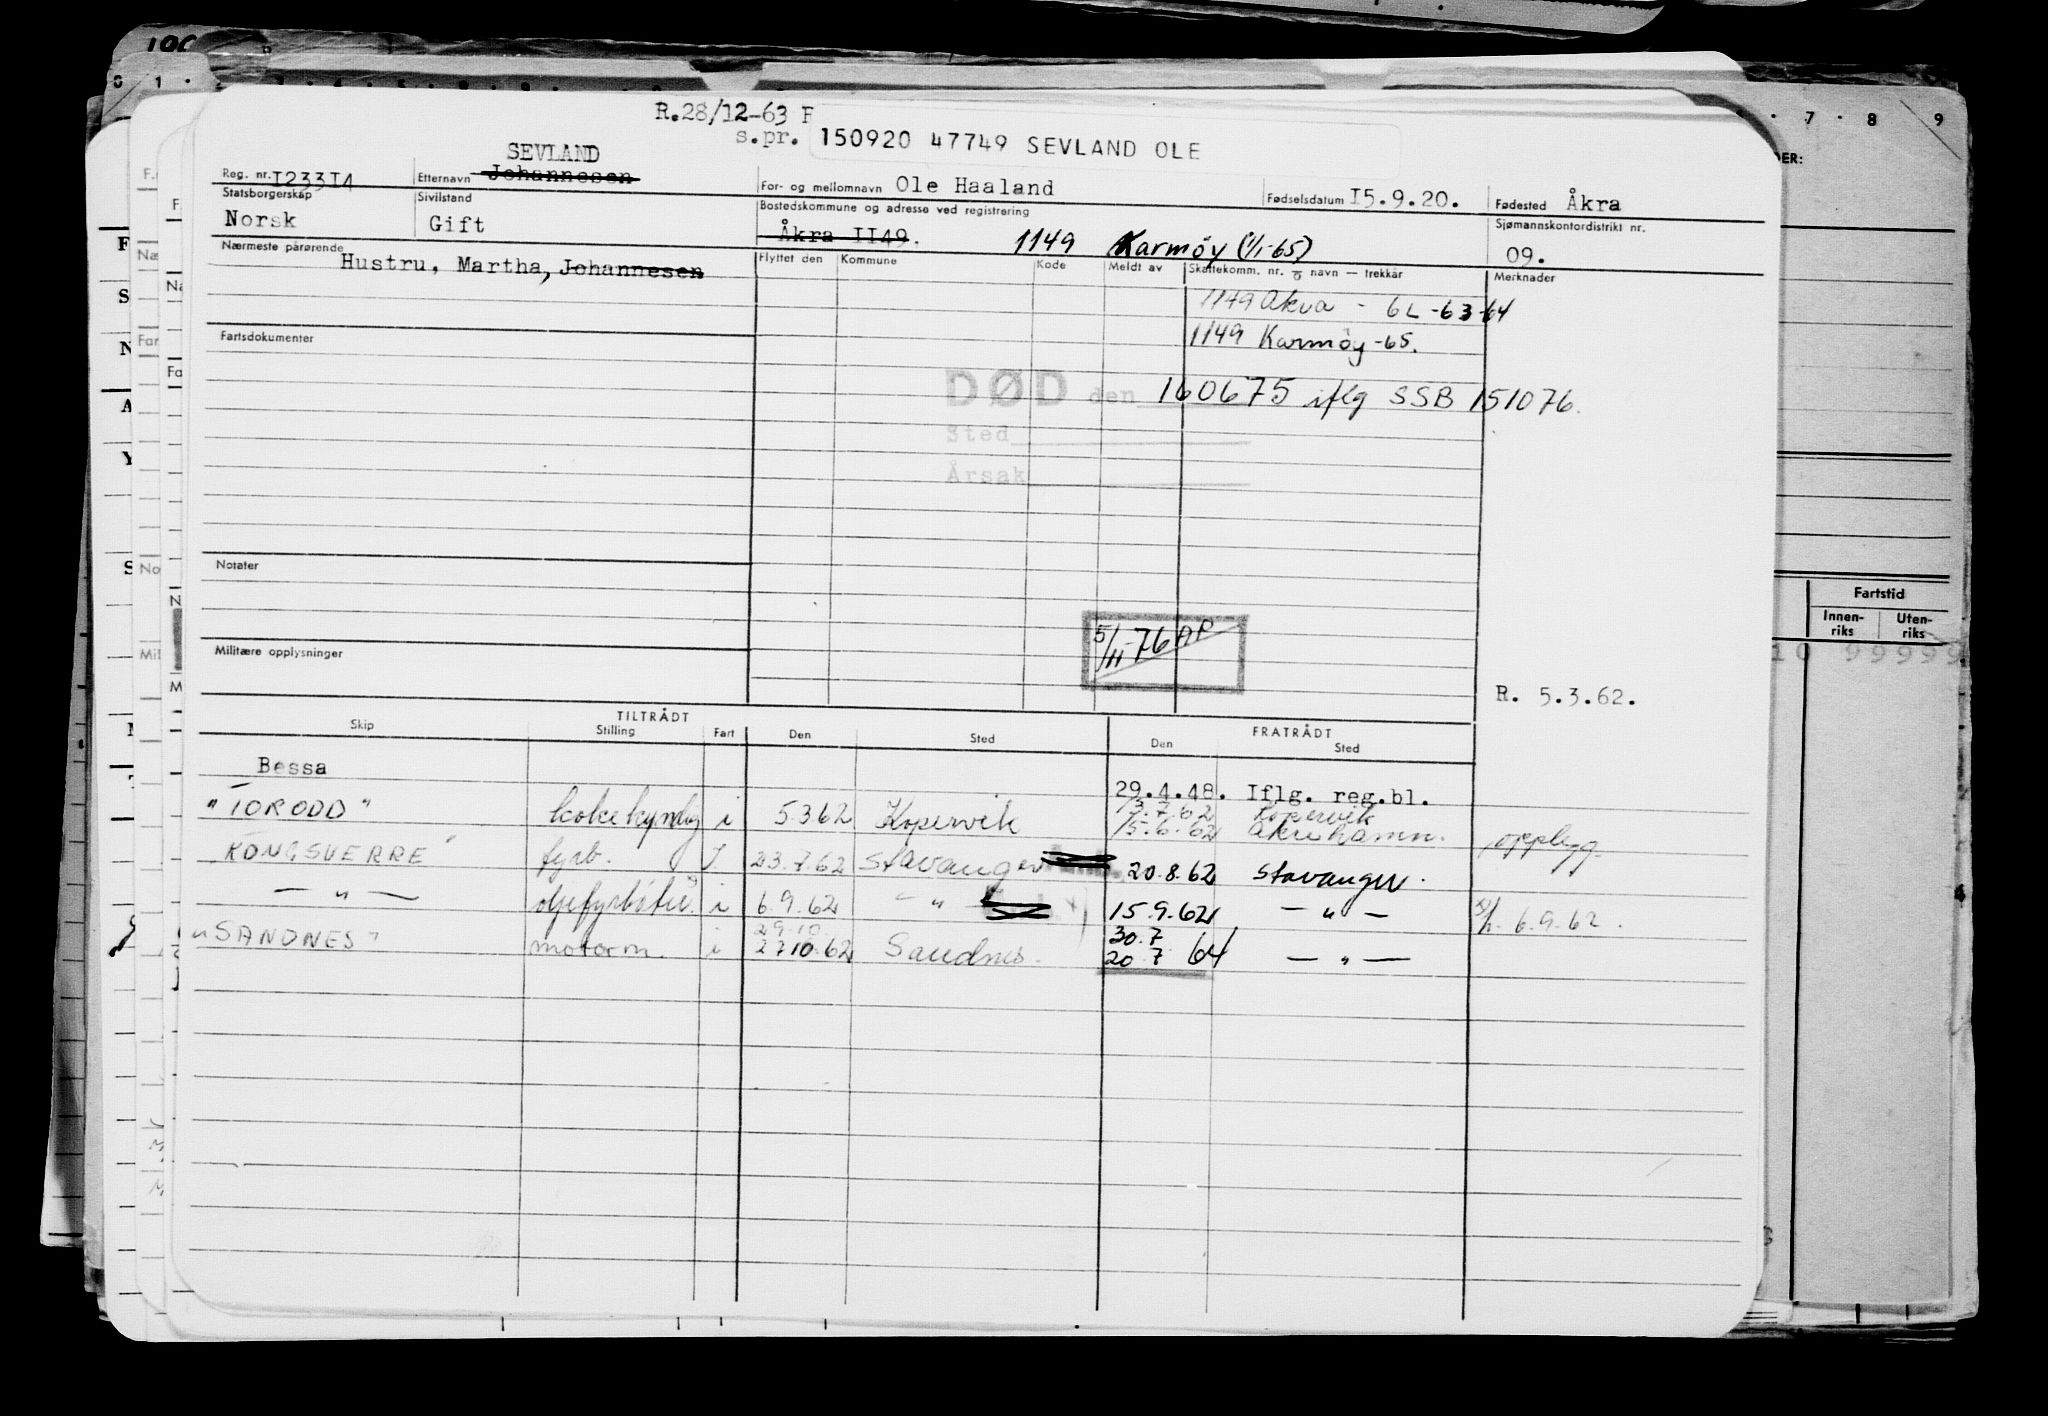 R.28/12-63 F
s.pr. 150920 47749 SEVLAND OLE
SEVLAND
Reg. nr. I233I4 Etternavn Johannesen For- og mellomnavn Ole Haaland Fødselsdatum I5.9.20. Fødested Åkra
Statsborgerskap Sivilstand Bostedskommune og adresse ved registrering Sjømannskontordistrikt nr.
Norsk Gift Åkra II49. 1149 Karmøy (1/1-65) 09.
Nærmeste pårørende Hustru, Martha, Johannesen Flyttet den Kommune Kode Meldt av Skattekomm. nr. og navn — trekkår Merknader
1149 Akra - 62-63-64
Fartsdokumenter 1149 Karmøy -65.
DØD den 160675 iflg SSB 151076.
Sted
Årsak
Notater
5/11-76 AP
Militære opplysninger
R. 5.3.62.
TILTRÅDT FRATRÅDT
Skip Stilling Fart Den Sted Den Sted
Bessa 29.4.48. Iflg. reg.bl.
13.7.62 Kopervik
"TORODD" i 5.3.62 Kopervik 15.6.62 Åkrehamn. opplegg.
"KONGSVERRE" fyrb. I 23.7.62 Stavanger 20.8.62 Stavanger.
— " — i 6.9.62 — " 15.9.62 — " — 6.9.62.
29.10. 30.7
"SANDNES" motorm. i 27.10.62 Sandnes. 20.7 64 — " —
Fartstid
Innen-riks Uten-riks
10 99999
7 8 9